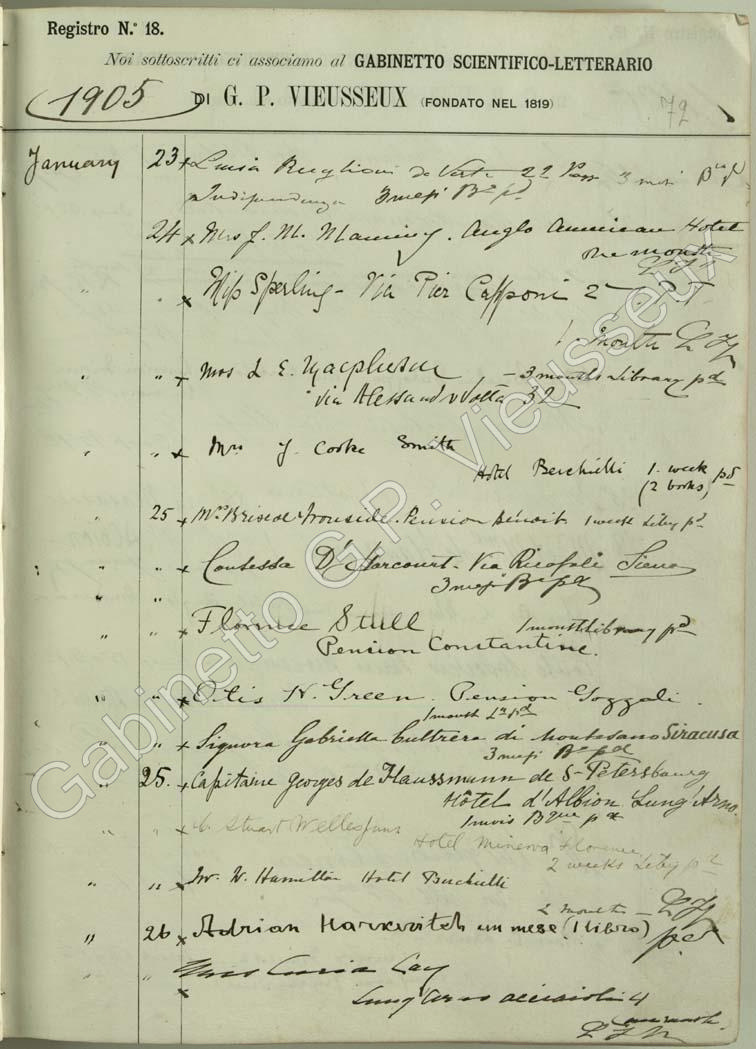 Registro N.º 18.
Noi sottoscritti ci associamo al GABINETTO SCIENTIFICO-LETTERARIO
1905 DI G. P. VIEUSSEUX (FONDATO NEL 1819)
72
January 23 x Luisa 22 3 mesi
Indipendenza 3 mesi Bª pd
24 x Mrs J. M. Anglo American Hotel
one month
x Miss Sperling - Via Pier Capponi 2
1 Month
" " x Mrs L E. Macpherson - 3 months Library pd
Via Alessandro Volta 32
" " x Mrs J. Cooke Smith
Hotel Berchielli 1. week pd
(2 books)
" 25 x Mrs Briscoe Ironside. Pension Benoit 1 week Liby pd
" " x Contessa D'Harcourt - Via Ricasoli Siena
" " 3 mesi Bª pd
" " x Florence Stull 1 month library pd
Pension Constantine.
" " x Otis H. Green. Pension Gozzoli.
1 month Ly pd
" " x Signora Gabriella Cultrera di Montesano Siracusa
3 mesi Bª pd
" 25. x Capitaine Georges de Haussmann de St Petersbourg
Hôtel d'Albion Lung'Arno.
1 mois Bque pd
" " x Stuart
Hotel Minerva Florence
2 weeks Liby pd
" " x W. Hamilton Hotel Berchielli
2 months -
" 26 x Adrian Harkevitch un mese (1 libro) pd
" " x Miss
Lung'Arno Acciaioli 4
one month
Gabinetto G.P. Vieusseux